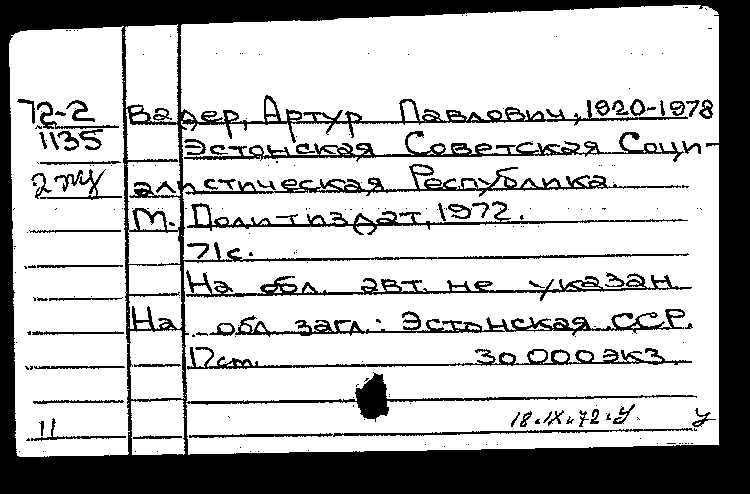 72-2 Вадер, Артур Павлович, 1920-1978
1135 Эстонская Советская Соци-
2 алистическая Республика.
М. Политиздат, 1972.
71 с.
На обл. авт. не указан.
На обл. загл.: Эстонская ССР.
30 000 экз.
18.IX.72.У. У
11